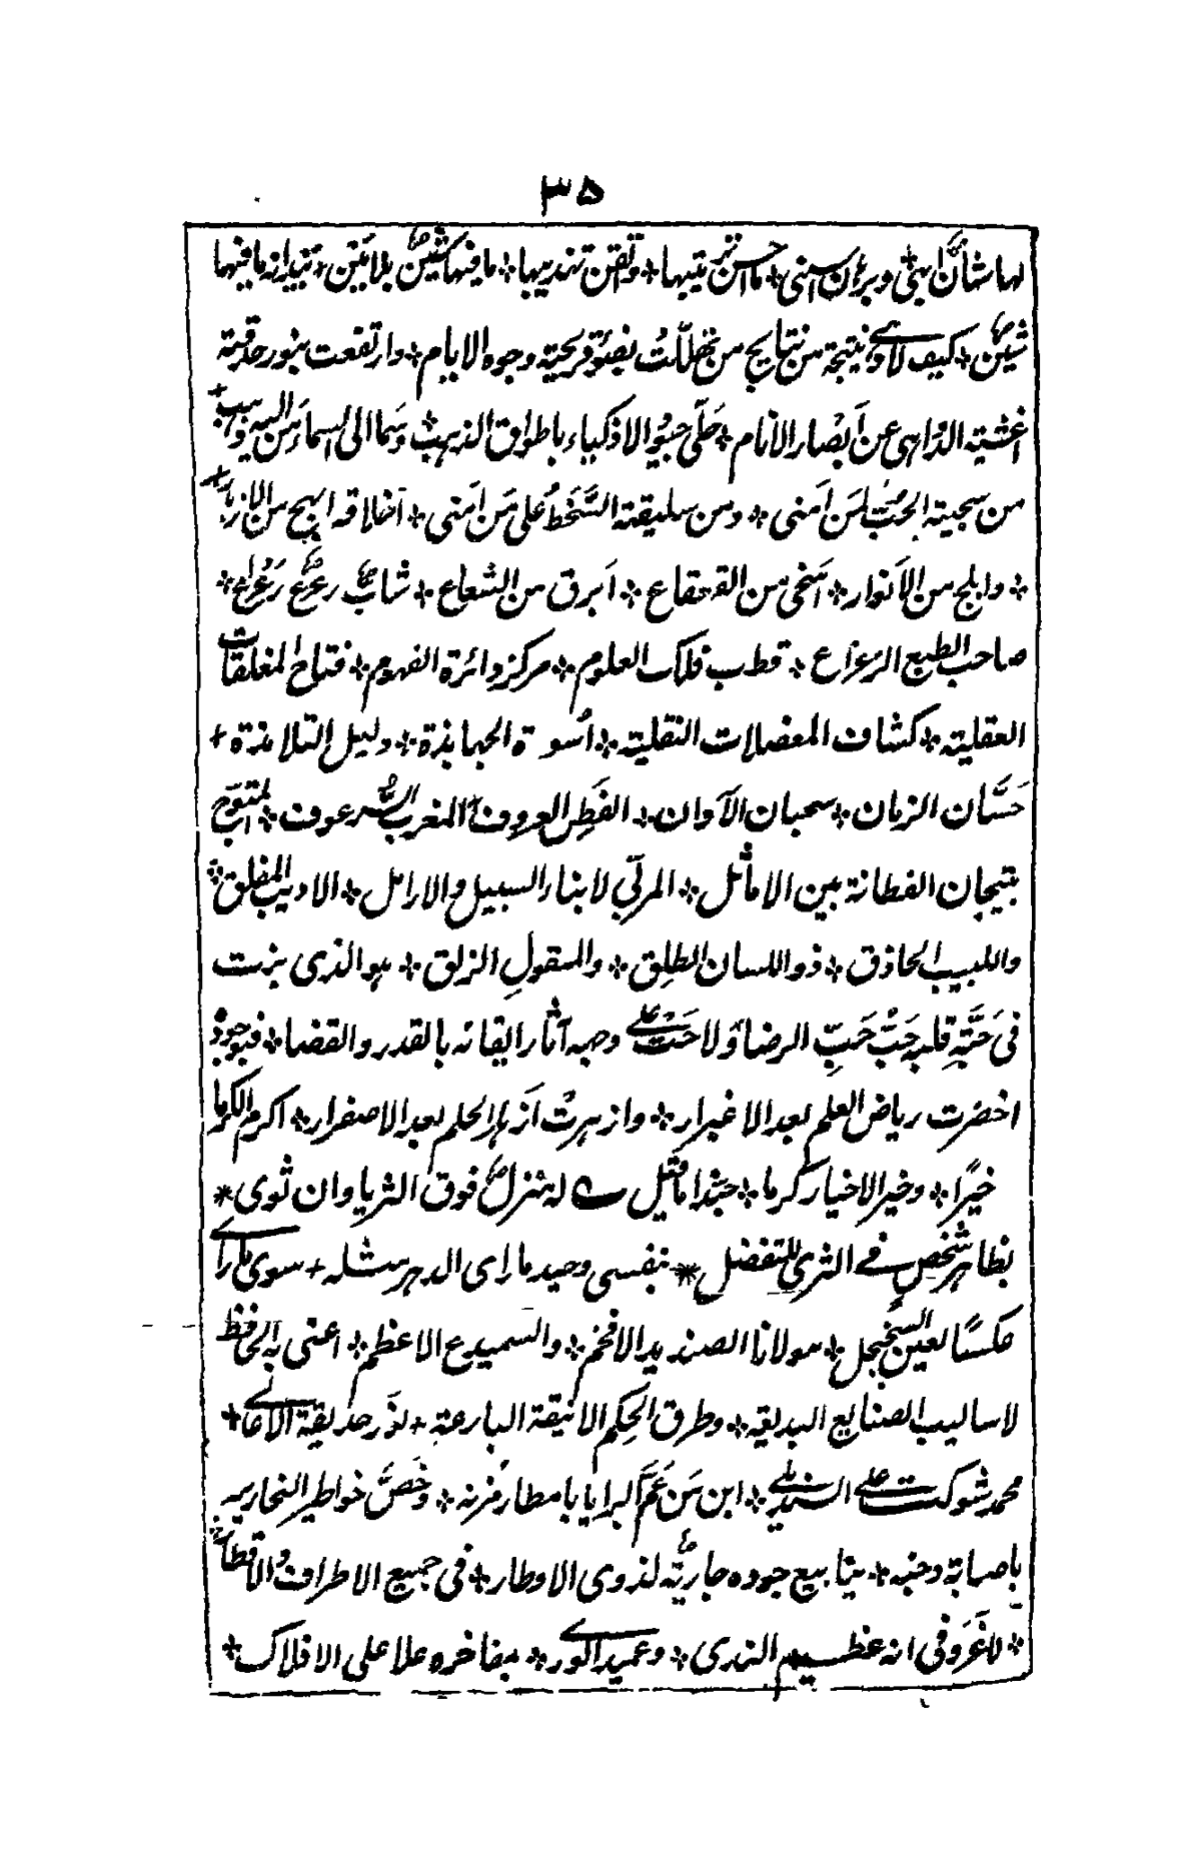 ۳۵
لها شأنٌ ابهى وبرهان اسنى * ما احسن ترتيبها * وتقن تهذيبها * ما فيها شينٌ بلا بين * تبدانه ما فيها
شين * كيف لا وهى نتيجة من نتايج من تهللت بضوء قريحته وجوه الايام * وارتفعت بنور حدقته
اغشية الدواهى عن اَبصار الانام * حَلّى جيود الاذكياء باطواق الذهب * وسَما الى السماء مَن اليه وهب *
من سجيته الحبّ لمَن اَمنى * ومن سليقته السَّخَط على مَن اَمنى * اخلاقه ابهج من الازهار
* وابلج من الاَنوار * اَسخى من القعقاع * اَبرق من الشعاع * شابٌّ رعرعٌ رَعْراع *
صاحب الطبع الرعراع * قطب فلك العلوم * مركز دائرة الفهوم * فتاح المغلقات
العقلية * كشاف المعضلات النقلية * اُسوة الجهابذة * دليل التلامذة *
حَسَّان الزمان * سحبان الآوان * الفَطِن العروف * المغرب الشرعوف * المتوّج
بتيجان الفطانة بين الاماثل * المربّي لابناء السبيل والارامل * الاديب المفلق *
واللبيب الحاذق * ذو اللسان الطلِق * والمقولِ الزلق * هو الذى بزت
فى حَبَّةِ قلبه حَبّ حَبِّ الرضاء ولاحَت على وجهه آثار ايقانه بالقدر والقضا * فبوجودٍ
اخضرت رياض العلم بعد الاغبرار * وازهرتْ اَزهار الحلم بعد الاصفرار * اكرم الكرما
خيرًا * وخير الاخيار كرما * حبّذا ما قيل ؎ له منزلٌ فوق الثريا وان ثوى *
بظاهر شخصٍ فى الثرى للتفضل * بنفسى وحيد ما راى الدهر مثله * سوى ما راى
عكسًا لعين السجنجل * مولانا الصنديد الافخم * والسميدع الاعظم * اعنى به الحافظ
لاساليب الصنايع البديعة * وطرق الحِكم الانيقة البارعة * نوْر حديقة الاعالى *
محمد شوكت على السنديلى * ابن مَن عَمَّ البرايا بامطار مُزنه * وخَصَّ خواطر النحارير
باصابة وخنه * ينابيع جوده جاريةٌ لذوى الاوطار * فى جميع الاطراف والاقطار
* لا غَرَو فى انه عظيم الندى * وعميد الورى * بمفاخره علا على الافلاك *